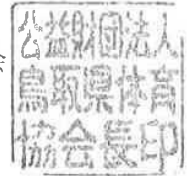 公益財団法人
鳥取県体育
協会長印